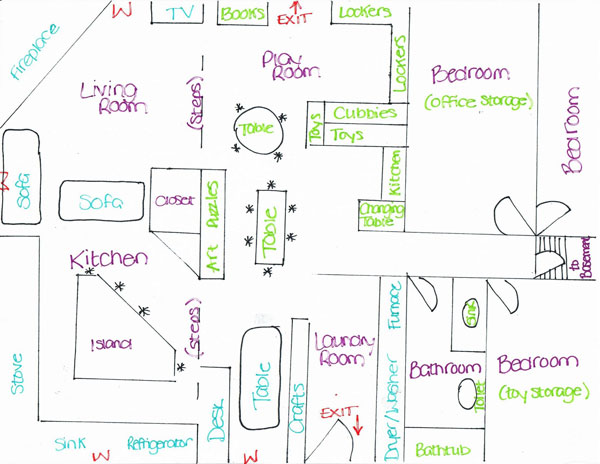 W
TV
Books
EXIT
Lockers
Fireplace
Play
Room
Lockers
Bedroom
(office storage)
Living
Room
(Steps)
Table
Toys
Cubbies
Toys
Bedroom
W
Sofa
Sofa
Closet
Puzzles
Art
Table
Kitchen
Changing
Table
to
Basement
Kitchen
Island
(Steps)
Furnace
Sink
Laundry
Room
Bathroom
Bedroom
(toy storage)
Stove
Table
Crafts
Dryer/Washer
Toilet
Desk
EXIT
Sink
Refrigerator
W
W
Bathtub